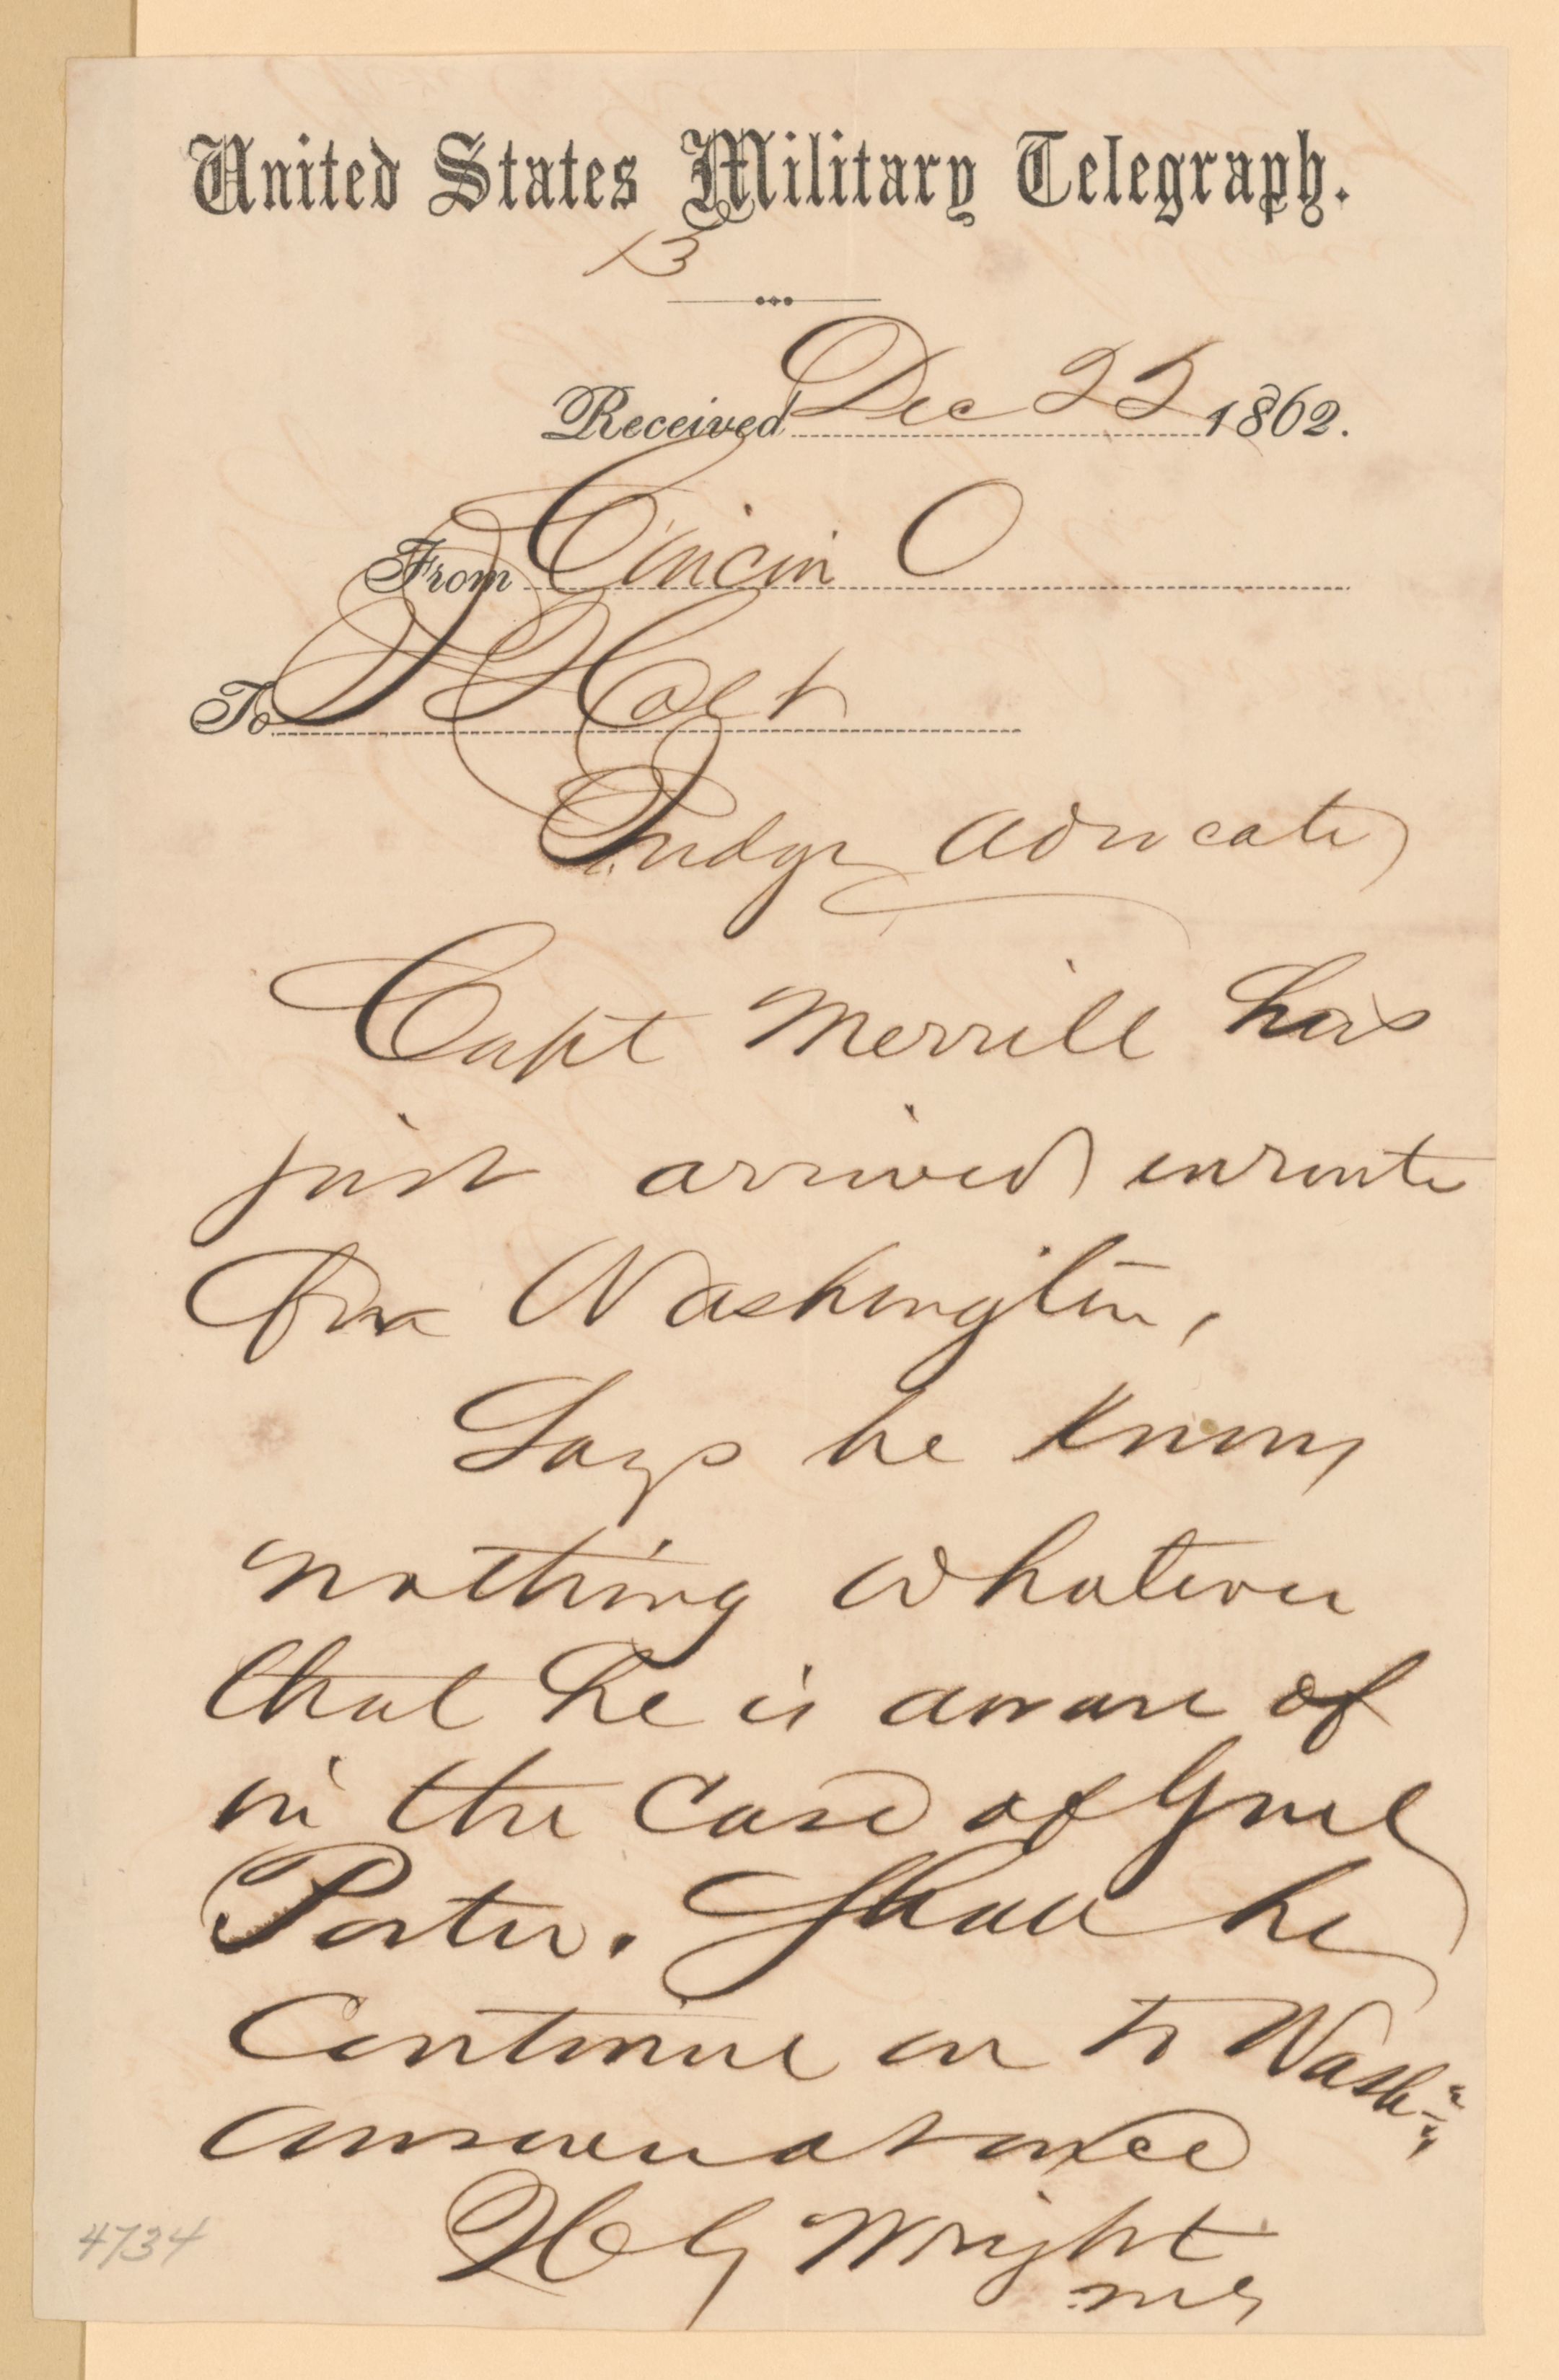 United States Military Telegraph.
13
Received Dec 22 1862.
From Cincin O
To J Holt
Judge Advocate
Capt Merrill has
just arrived enroute
for Washington,
Says he knows
nothing whatever
that he is aware of
in the case of Genl
Porter. Shall he
continue on to Washn
answer at once
H G Wright
MG
4734